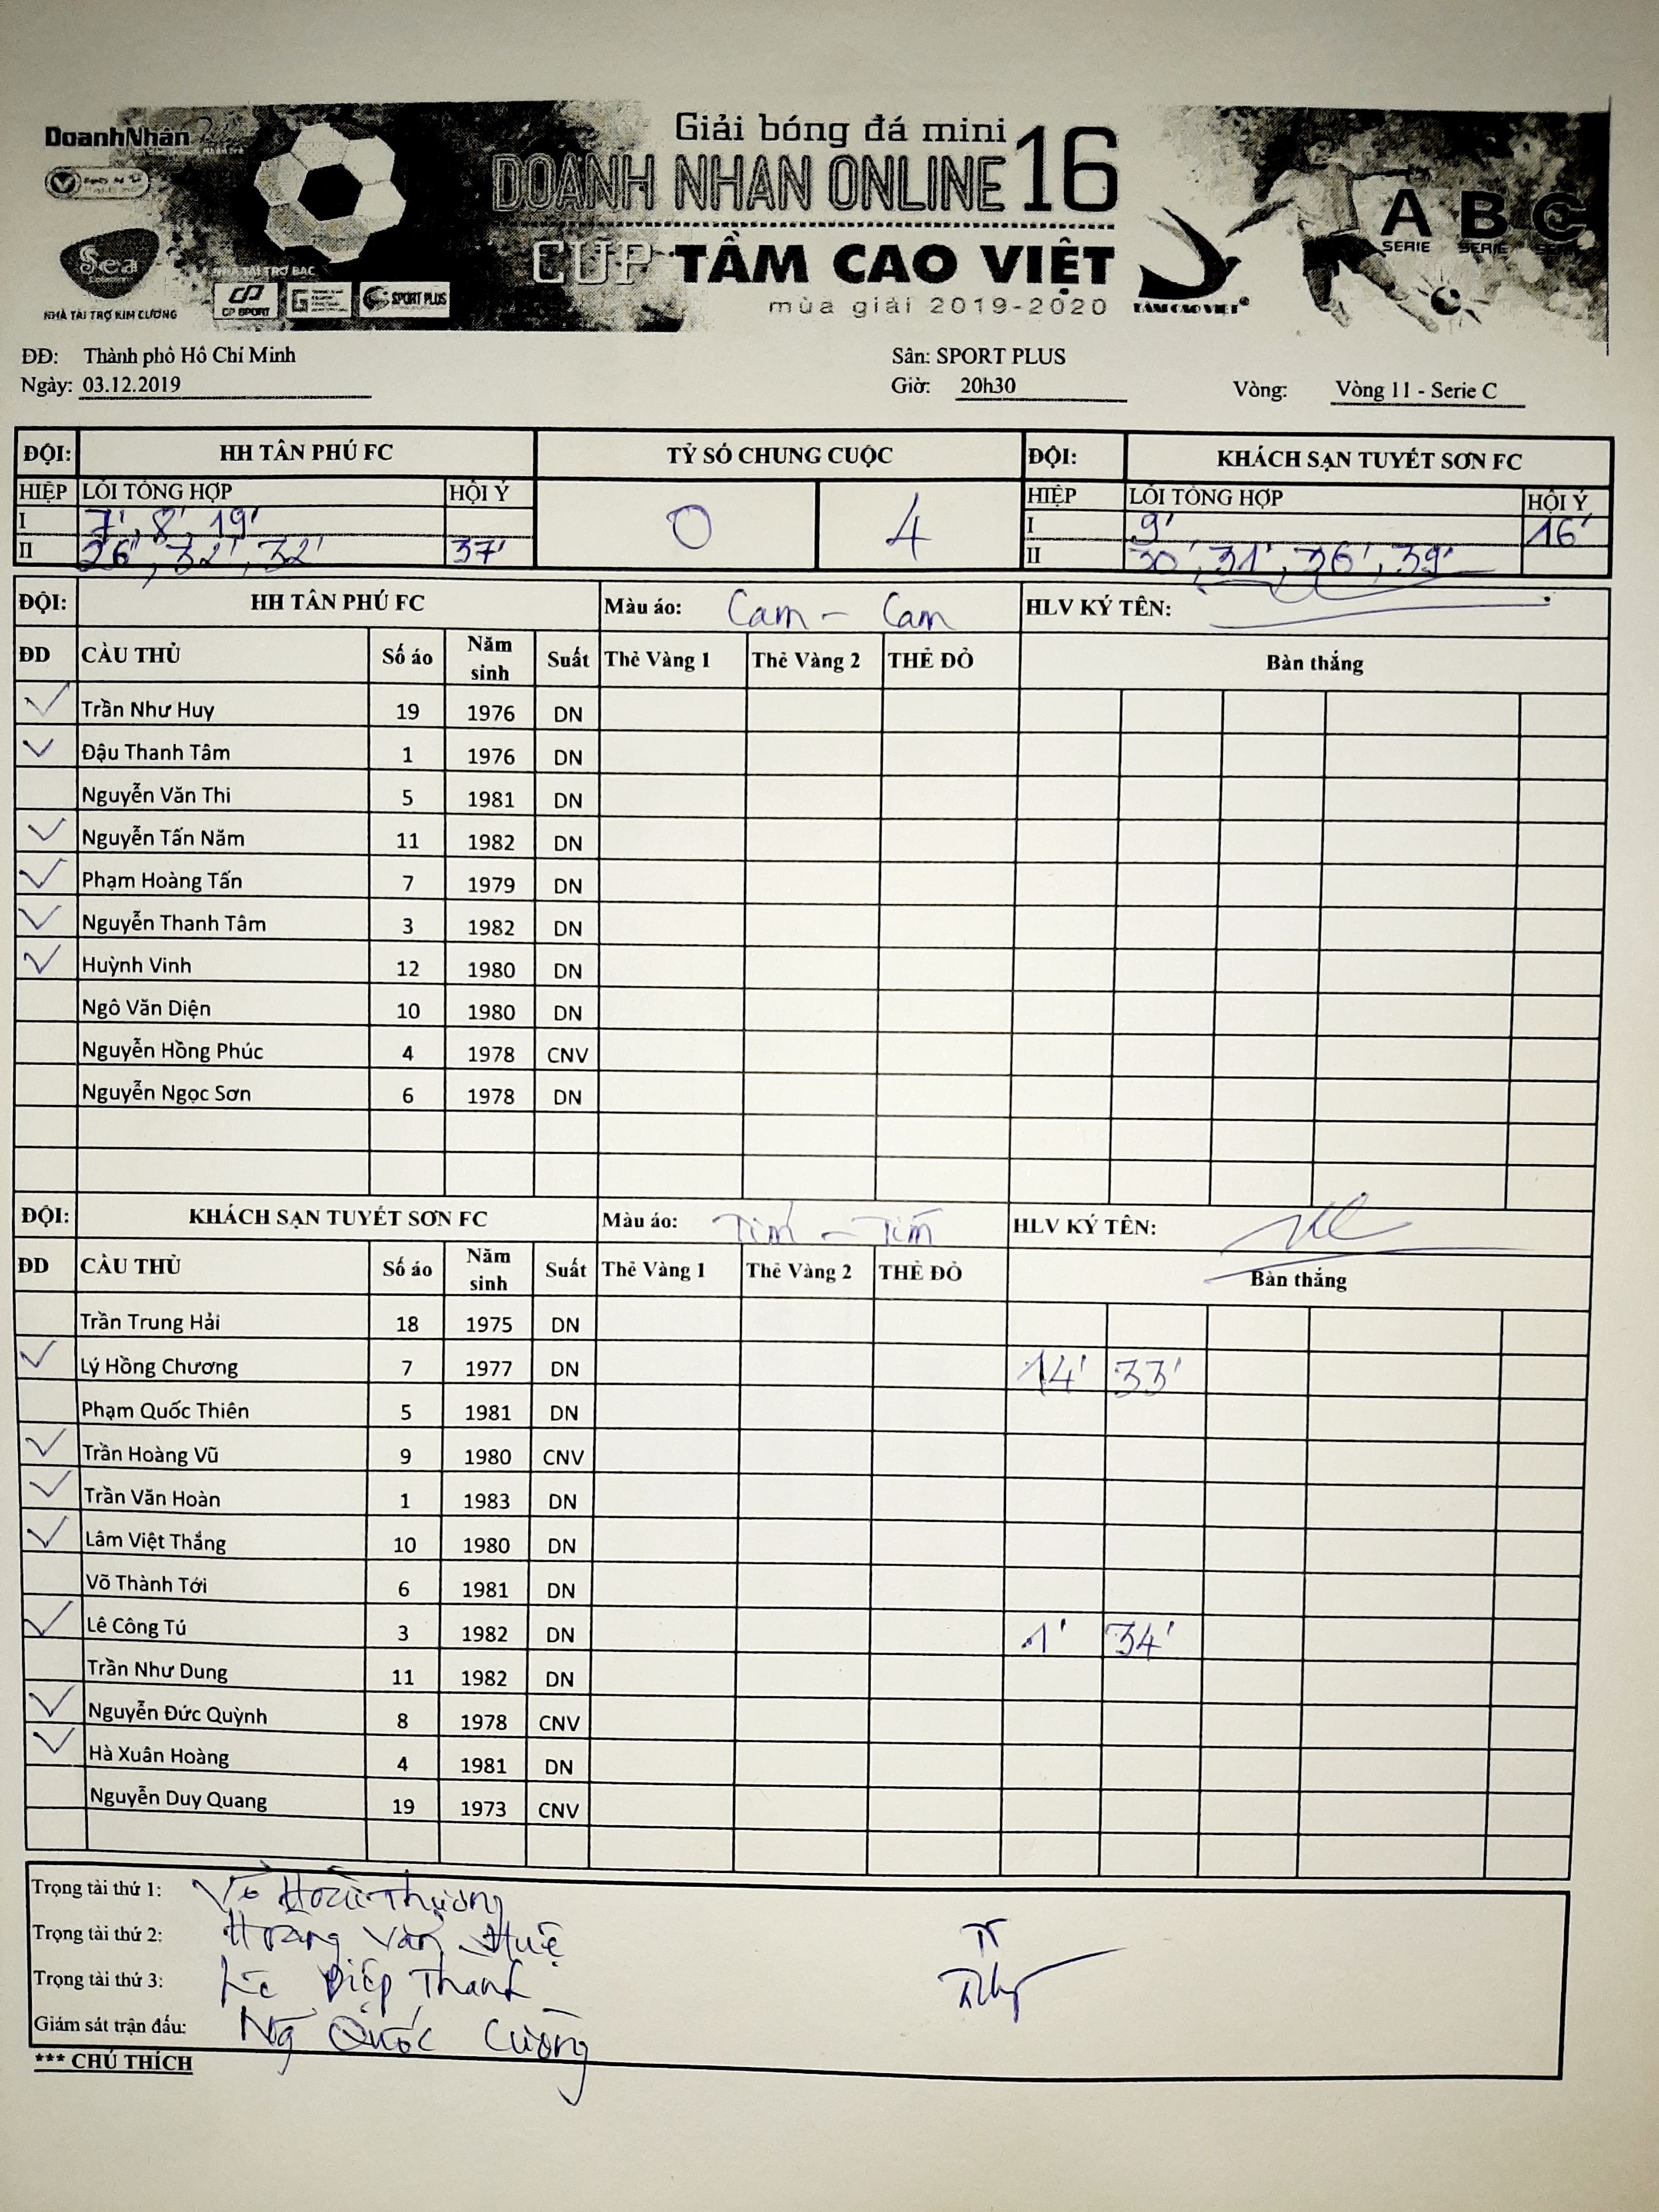 DoanhNhân
Giải bóng đá mini
DOANH NHAN ONLINE 16
CUP TẦM CAO VIỆT
mùa giải 2019-2020
Sea
NHÀ TÀI TRỢ KIM CƯƠNG
NHÀ TÀI TRỢ BẠC
CP SPORT
SPORT PLUS
TẦM CAO VIỆT
A B C
SERIE SERIE
ĐĐ: Thành phố Hồ Chí Minh Sân: SPORT PLUS
Ngày: 03.12.2019 Giờ: 20h30 Vòng: Vòng 11 - Serie C
ĐỘI: HH TÂN PHÚ FC TỶ SỐ CHUNG CUỘC ĐỘI: KHÁCH SẠN TUYẾT SƠN FC
HIỆP LỖI TỔNG HỢP HỘI Ý 0 4 HIỆP LỖI TỔNG HỢP HỘI Ý
I 7', 8', 19' I 9' 16'
II 26', 32', 32' 37' II 30', 31', 36', 39'
ĐỘI: HH TÂN PHÚ FC Màu áo: Cam - Cam HLV KÝ TÊN:
ĐD CẦU THỦ Số áo Năm sinh Suất Thẻ Vàng 1 Thẻ Vàng 2 THẺ ĐỎ Bàn thắng
Trần Như Huy 19 1976 DN
Đậu Thanh Tâm 1 1976 DN
Nguyễn Văn Thi 5 1981 DN
Nguyễn Tấn Năm 11 1982 DN
Phạm Hoàng Tấn 7 1979 DN
Nguyễn Thanh Tâm 3 1982 DN
Huỳnh Vinh 12 1980 DN
Ngô Văn Diện 10 1980 DN
Nguyễn Hồng Phúc 4 1978 CNV
Nguyễn Ngọc Sơn 6 1978 DN
ĐỘI: KHÁCH SẠN TUYẾT SƠN FC Màu áo: Tím - Tím HLV KÝ TÊN:
ĐD CẦU THỦ Số áo Năm sinh Suất Thẻ Vàng 1 Thẻ Vàng 2 THẺ ĐỎ Bàn thắng
Trần Trung Hải 18 1975 DN
Lý Hồng Chương 7 1977 DN 14' 33'
Phạm Quốc Thiên 5 1981 DN
Trần Hoàng Vũ 9 1980 CNV
Trần Văn Hoàn 1 1983 DN
Lâm Việt Thắng 10 1980 DN
Võ Thành Tới 6 1981 DN
Lê Công Tú 3 1982 DN 1' 34'
Trần Như Dung 11 1982 DN
Nguyễn Đức Quỳnh 8 1978 CNV
Hà Xuân Hoàng 4 1981 DN
Nguyễn Duy Quang 19 1973 CNV
Trọng tài thứ 1: Võ Hoài Thương
Trọng tài thứ 2: Hoàng Văn Huệ
Trọng tài thứ 3: Lê Diệp Thanh
Giám sát trận đấu: Ng Quốc Cường
*** CHÚ THÍCH